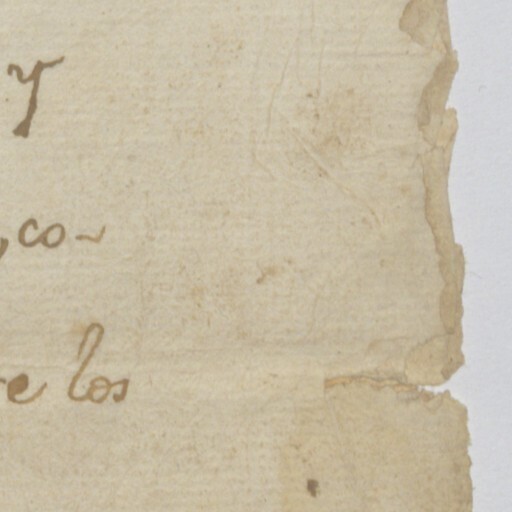 y
, co-
e los